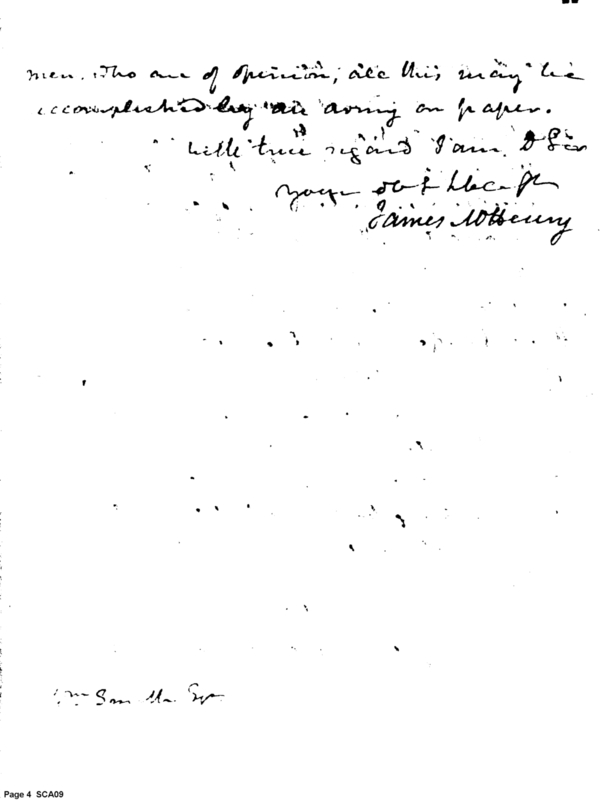 men. who are of opinion, all this may be
accomplished by an army on paper.
With true regard I am D Sir
your obt
James McHenry
Wm Smith Esqr
Page 4 SCA09